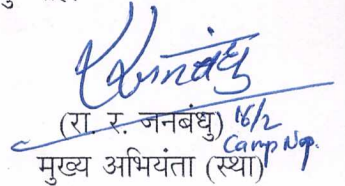 (रा. र. जनबंधु) 16/2
Camp Ngp.
मुख्य अभियंता (स्था)